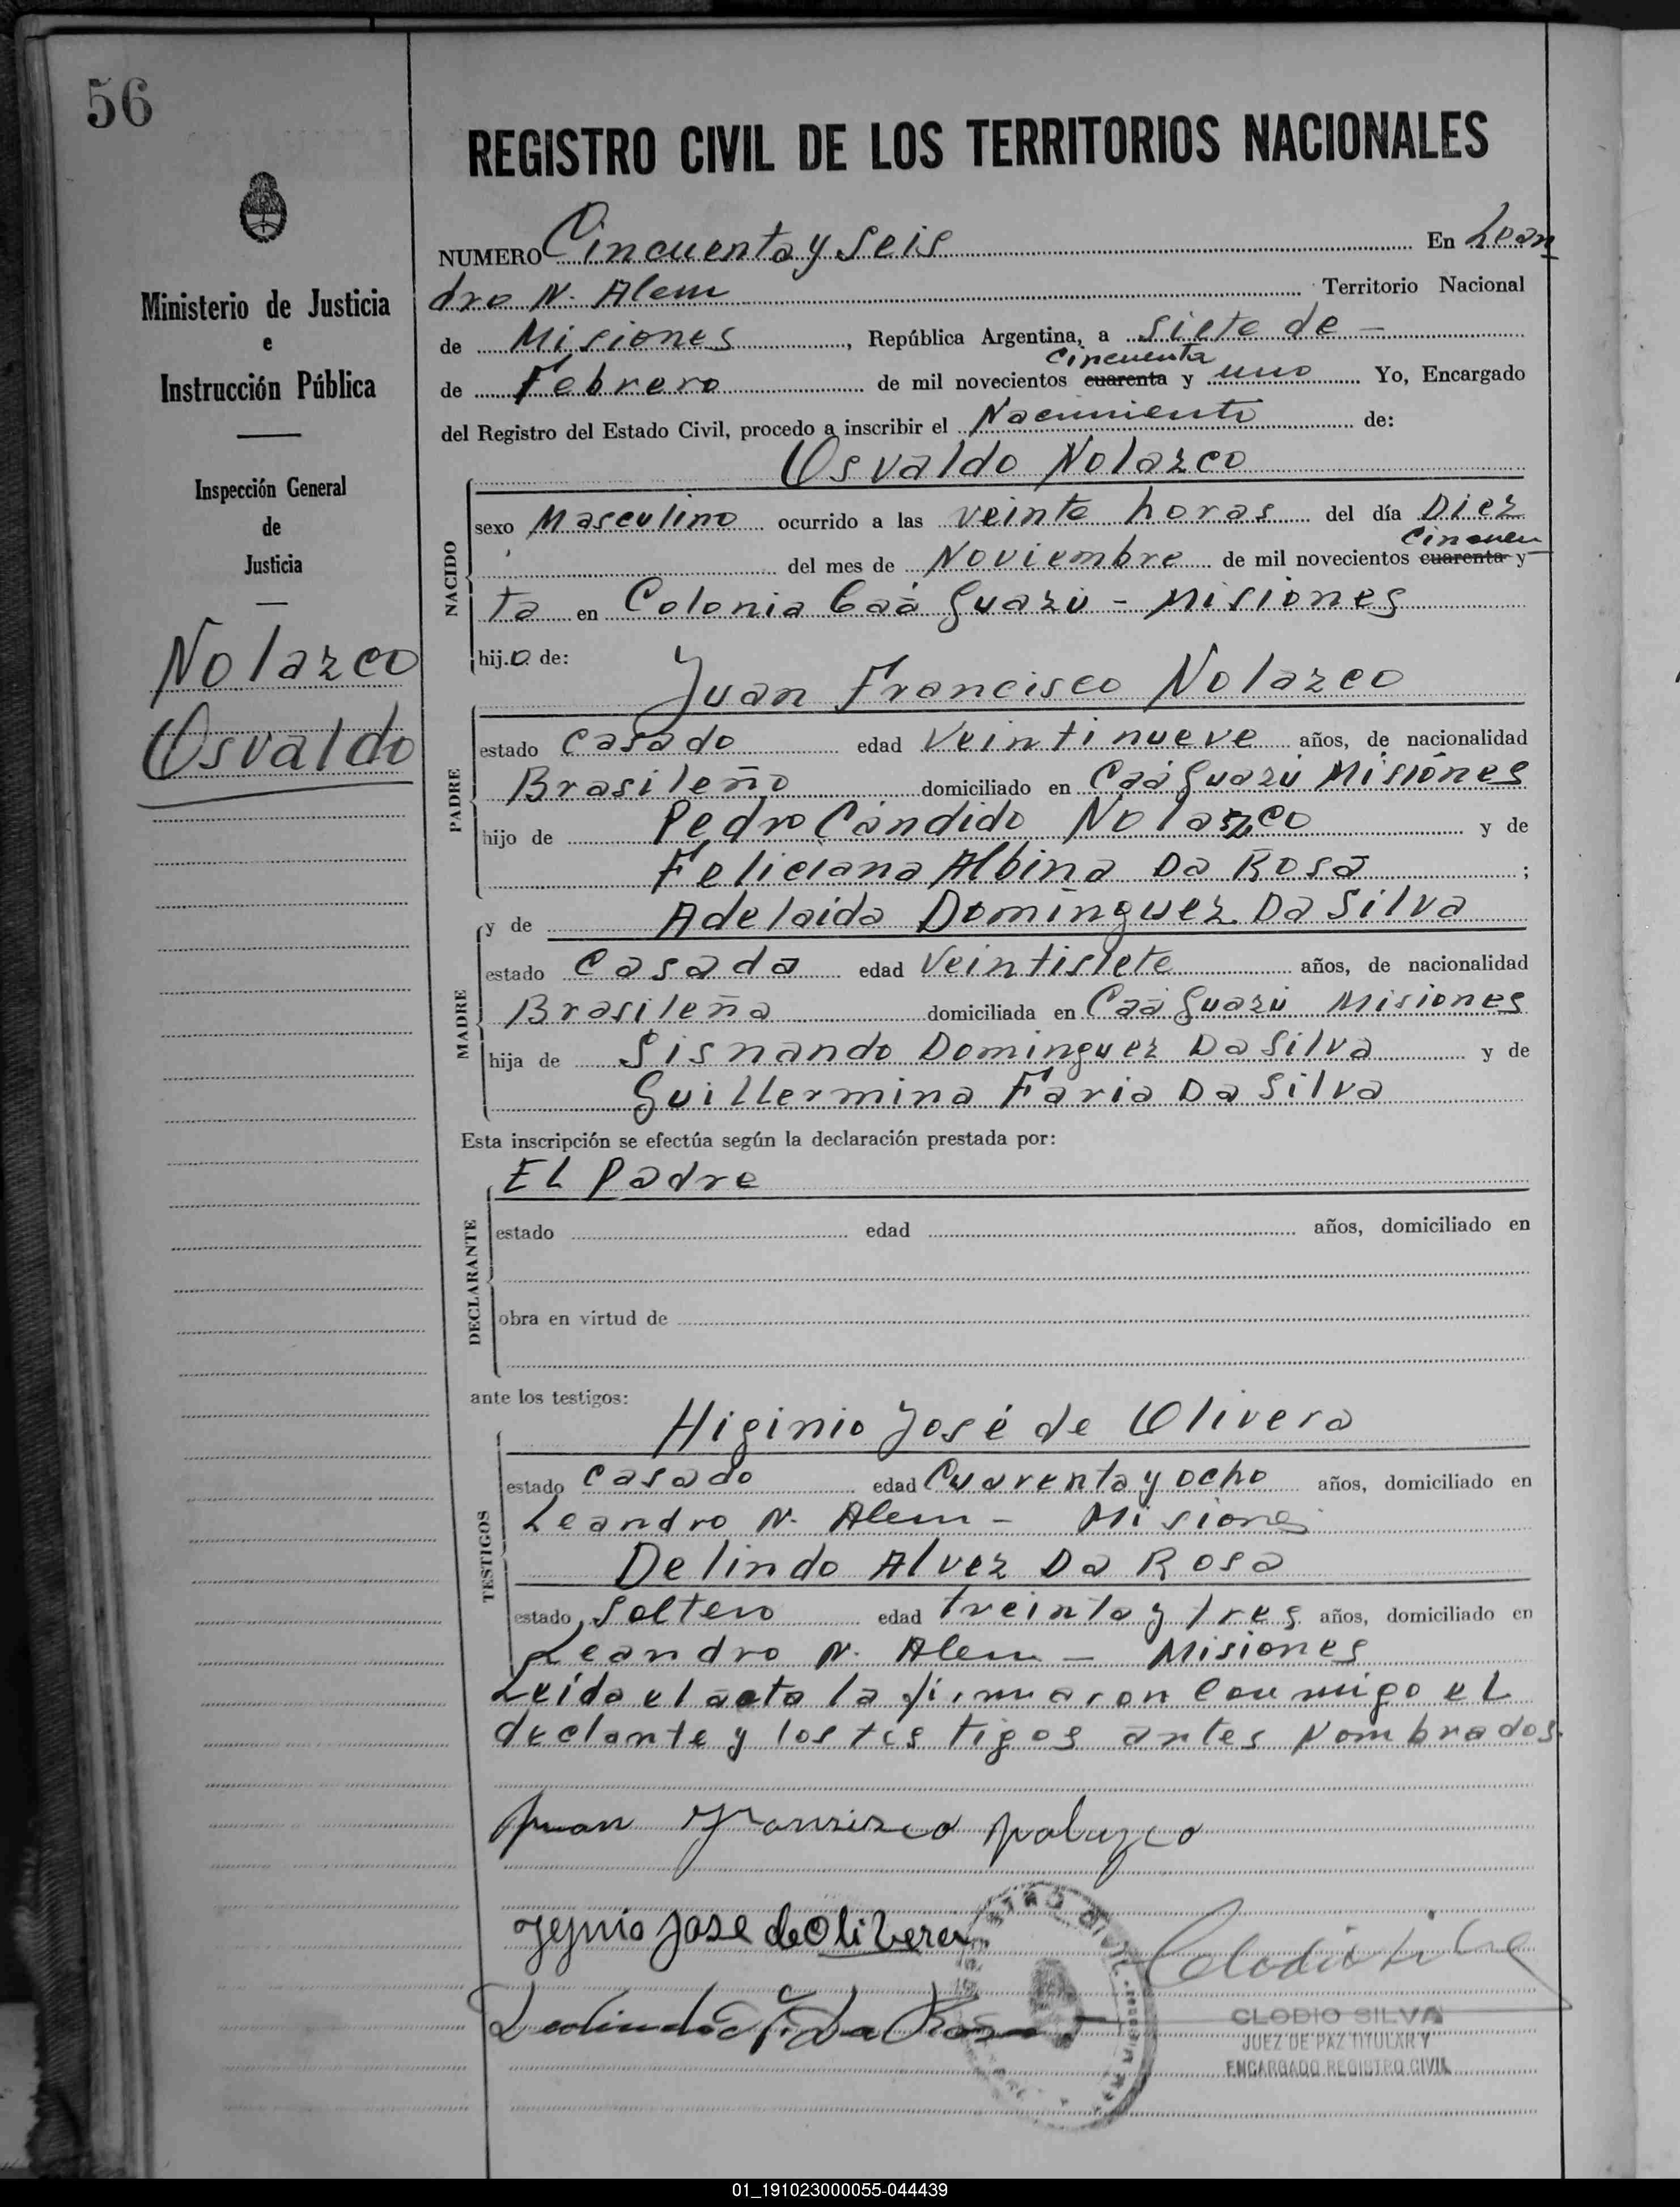 56
REGISTRO CIVIL DE LOS TERRITORIOS NACIONALES
Ministerio de Justicia
e
Instrucción Pública
Inspección General
de
Justicia
Nolazco
Osvaldo
NUMERO Cincuenta y Seis En Lean
dro N. Alem Territorio Nacional
de Misiones, República Argentina, a Siete de —
cincuenta
de Febrero de mil novecientos cuarenta y uno Yo, Encargado
del Registro del Estado Civil, procedo a inscribir el Nacimiento de:
Osvaldo Nolazco
NACIDO
sexo Masculino ocurrido a las veinte horas del día Diez
Cincuen
del mes de Noviembre de mil novecientos cuarenta y
ta en Colonia Caá Guazú - Misiones
hijo de:
Juan Francisco Nolazco
PADRE
estado Casado edad Veintinueve años, de nacionalidad
Brasileño domiciliado en Caá Guazú Misiones
hijo de Pedro Cándido Nolazco y de
Feliciana Albina Da Rosa ;
y de Adelaida Dominguez Da Silva
MADRE
estado Casada edad Veintisiete años, de nacionalidad
Brasileña domiciliada en Caá Guazú Misiones
hija de Sisnando Dominguez Da Silva y de
Guillermina Faria Da Silva
Esta inscripción se efectúa según la declaración prestada por:
El Padre
DECLARANTE
estado edad años, domiciliado en
obra en virtud de
ante los testigos:
Higinio José de Olivera
TESTIGOS
estado Casado edad Cuarenta y ocho años, domiciliado en
Leandro N. Alem - Misiones
Delindo Alvez Da Rosa
estado Soltero edad treinta y tres años, domiciliado en
Leandro N. Alem - Misiones
Leída el acta la firmaron conmigo el
declante y los testigos antes Nombrados.
Juan Fransisco Nolazco
Jejnio Jose de Olibera
Da Rosa
CLODIO SILVA
JUEZ DE PAZ TITULAR Y
ENCARGADO REGISTRO CIVIL
01_191023000055-044439